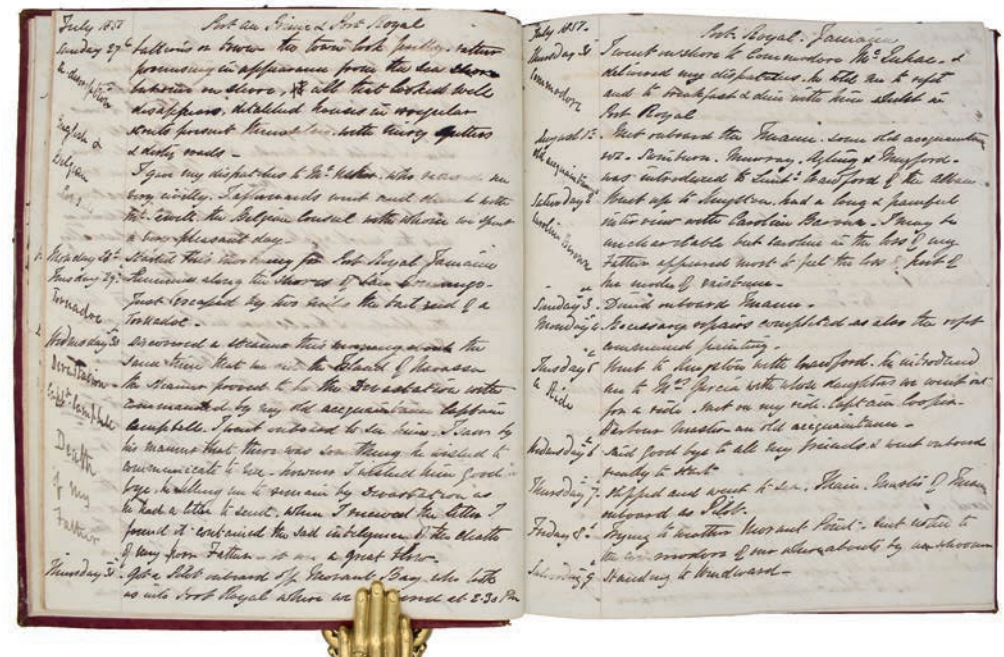 July 1851 Port au Prince & Port Royal
Sunday 27th batteries or towers the town look pretty. rather
a description promising in appearance from the sea shore
on shore, all that looked well
disappears, detatched houses in irregular
streets present themselves with gutters
English & & dirty roads -
Belgian I gave my dispatches to Mr. Usher, who received me
very civilly. I afterwards went and with
Mr. the Belgian Consul with whom we spent
a very pleasant day -
Monday 28th Started this morning for Port Royal Jamaica
Tuesday 29th Running along the shores of San Domingo -
Tornadoe Just escaped by two the tail end of a
Tornadoe -
Wednesday 30 discovered a steamer this morning about the
same time that we the Island of Navassa
Devastation the Steamer proved to be the Devastation
Capt. Campbell commanded by my old acquaintance Captain
Campbell. I went onboard to see him. I saw by
Death his manner that there was some thing he wished to
communicate to me - however I wished him good
of my bye. he telling me to remain by Devastation as
he had a letter to send. when I received the letter I
Father found it contained the sad intelligence of the death
of my poor Father - it was a great blow -
Thursday 31 Got a Pilot onboard off Morant Bay, who took
us into Port Royal where we at 2.30 PM
July 1851. Port Royal. Jamaica
Thursday 31 I went on shore to Commodore & 
Commodore delivered my dispatches. he told me to refit
and to breakfast & dine with him whilst in
Port Royal
August 1st Met onboard the some old acquaintances
old acquaintances viz. Swinburn. Murray. & Mugford -
was introduced to Lieut. Crawford of the
Saturday 2 Went up to Kingston. had a long & painful
Caroline Brown interview with Caroline Brown. I may be
uncharitable but Caroline in the loss of my
Father appeared most to feel the loss of part of
her mode of existence -
Sunday 3. Dined onboard
Monday 4. Necessary repairs completed as also the refit
commenced painting -
Tuesday 5 Went to Kingston with Crawford. he introduced
a Ride me to Mrs. Garcia with whose daughters we went out
for a ride. Met on my ride. Captain Cooper -
Harbour Master an old acquaintance -
Wednesday 6 Said good bye to all my friends & went onboard
ready to start
Thursday 7. Slipped and went to sea.
onboard as Pilot.
Friday 8. Trying to weather Morant Point. sent note to
the Commodore of our whereabouts by
Saturday 9 Standing to Windward -